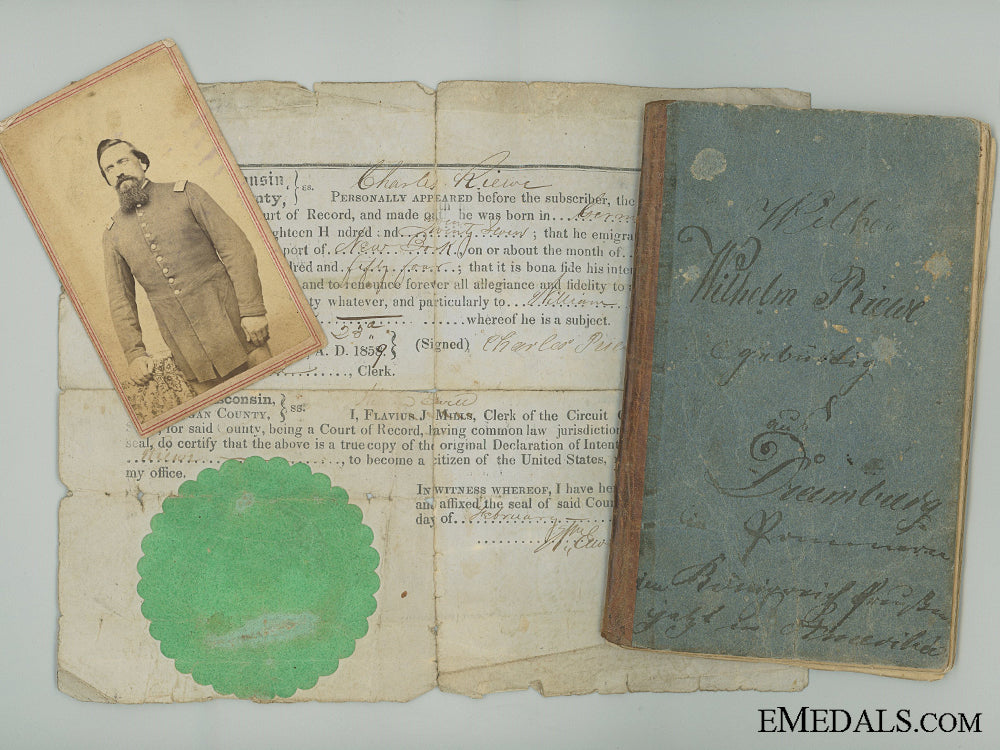 consin,
unty, } ss.
Charles Riewe
PERSONALLY APPEARED before the subscriber, the
ourt of Record, and made oath he was born in
ghteen H ndred nd ; that he emigra
port of New York, on or about the month of
dred and fifty four ; that it is bona fide his inten
and to renounce forever all allegiance and fidelity to
ty whatever, and particularly to
whereof he is a subject.
23d
, A. D. 1859. } (Signed) Charles
, Clerk.
isconsin,
GAN COUNTY, } ss. I, FLAVIUS J MILLS, Clerk of the Circuit C
, for said County, being a Court of Record, having common law jurisdiction
seal, do certify that the above is a true copy of the original Declaration of Intent
, to become a citizen of the United States,
my office.
IN WITNESS WHEREOF, I have her
and affixed the seal of said Cour
day of
Wilhe
Wilhelm Riewe
gebürtig
aus
Dramburg
in Pommern,
im Königreich Preußen
jetzt in Amerika
EMEDALS.COM